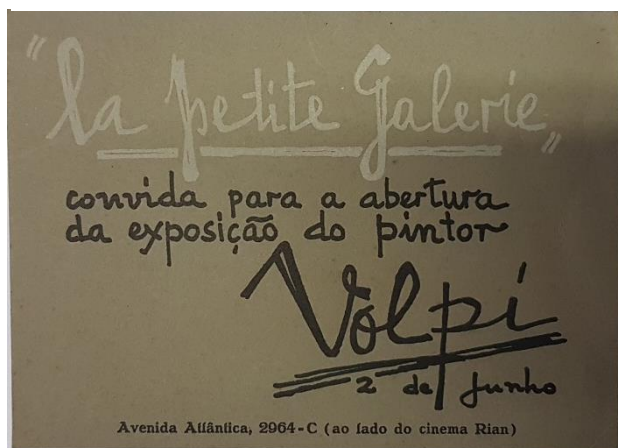 "la petite Galerie"
convida para a abertura
da exposição do pintor
Volpi
2 de junho
Avenida Atlântica, 2964-C (ao lado do cinema Rian)